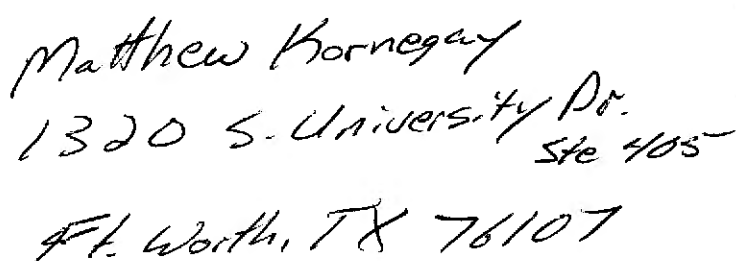 Matthew Kornegay
1320 S. University Dr.
Ste 405
Ft. Worth, TX 76107